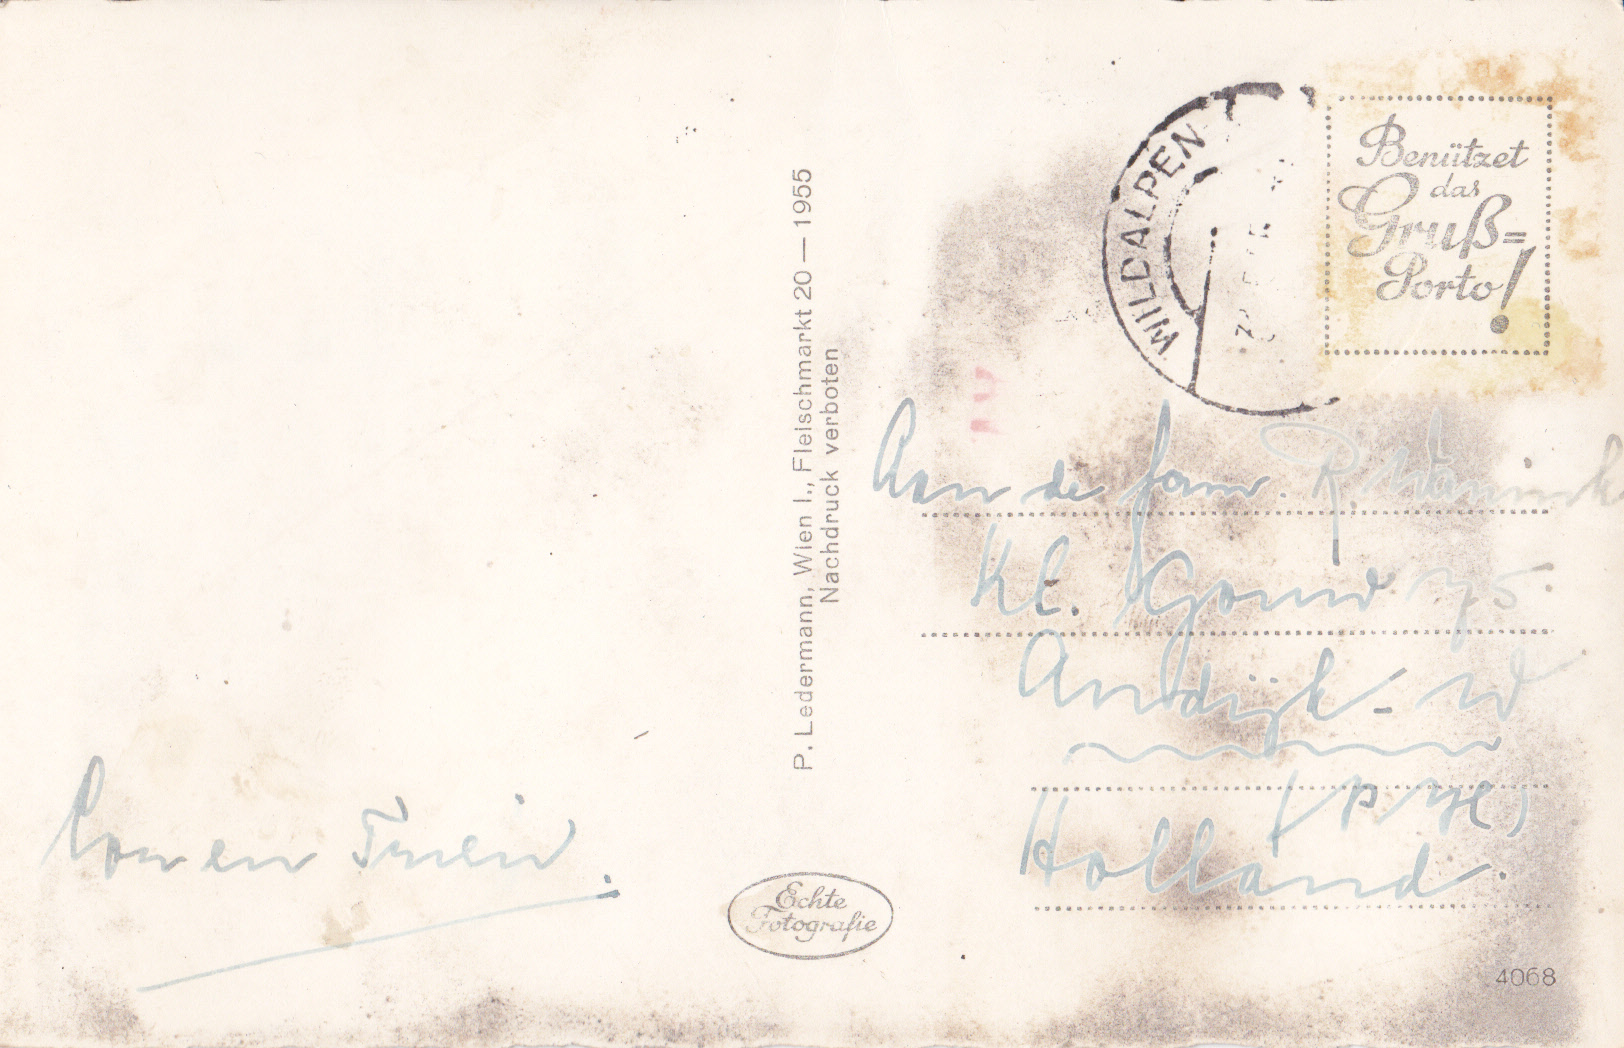 WILDALPEN
Benützet
das
Gruß=
Porto!
P. Ledermann, Wien I., Fleischmarkt 20 — 1955
Nachdruck verboten
Aan de fam. R.
Kl.
Andijk - W
Holland.
en
Echte
Fotografie
4068